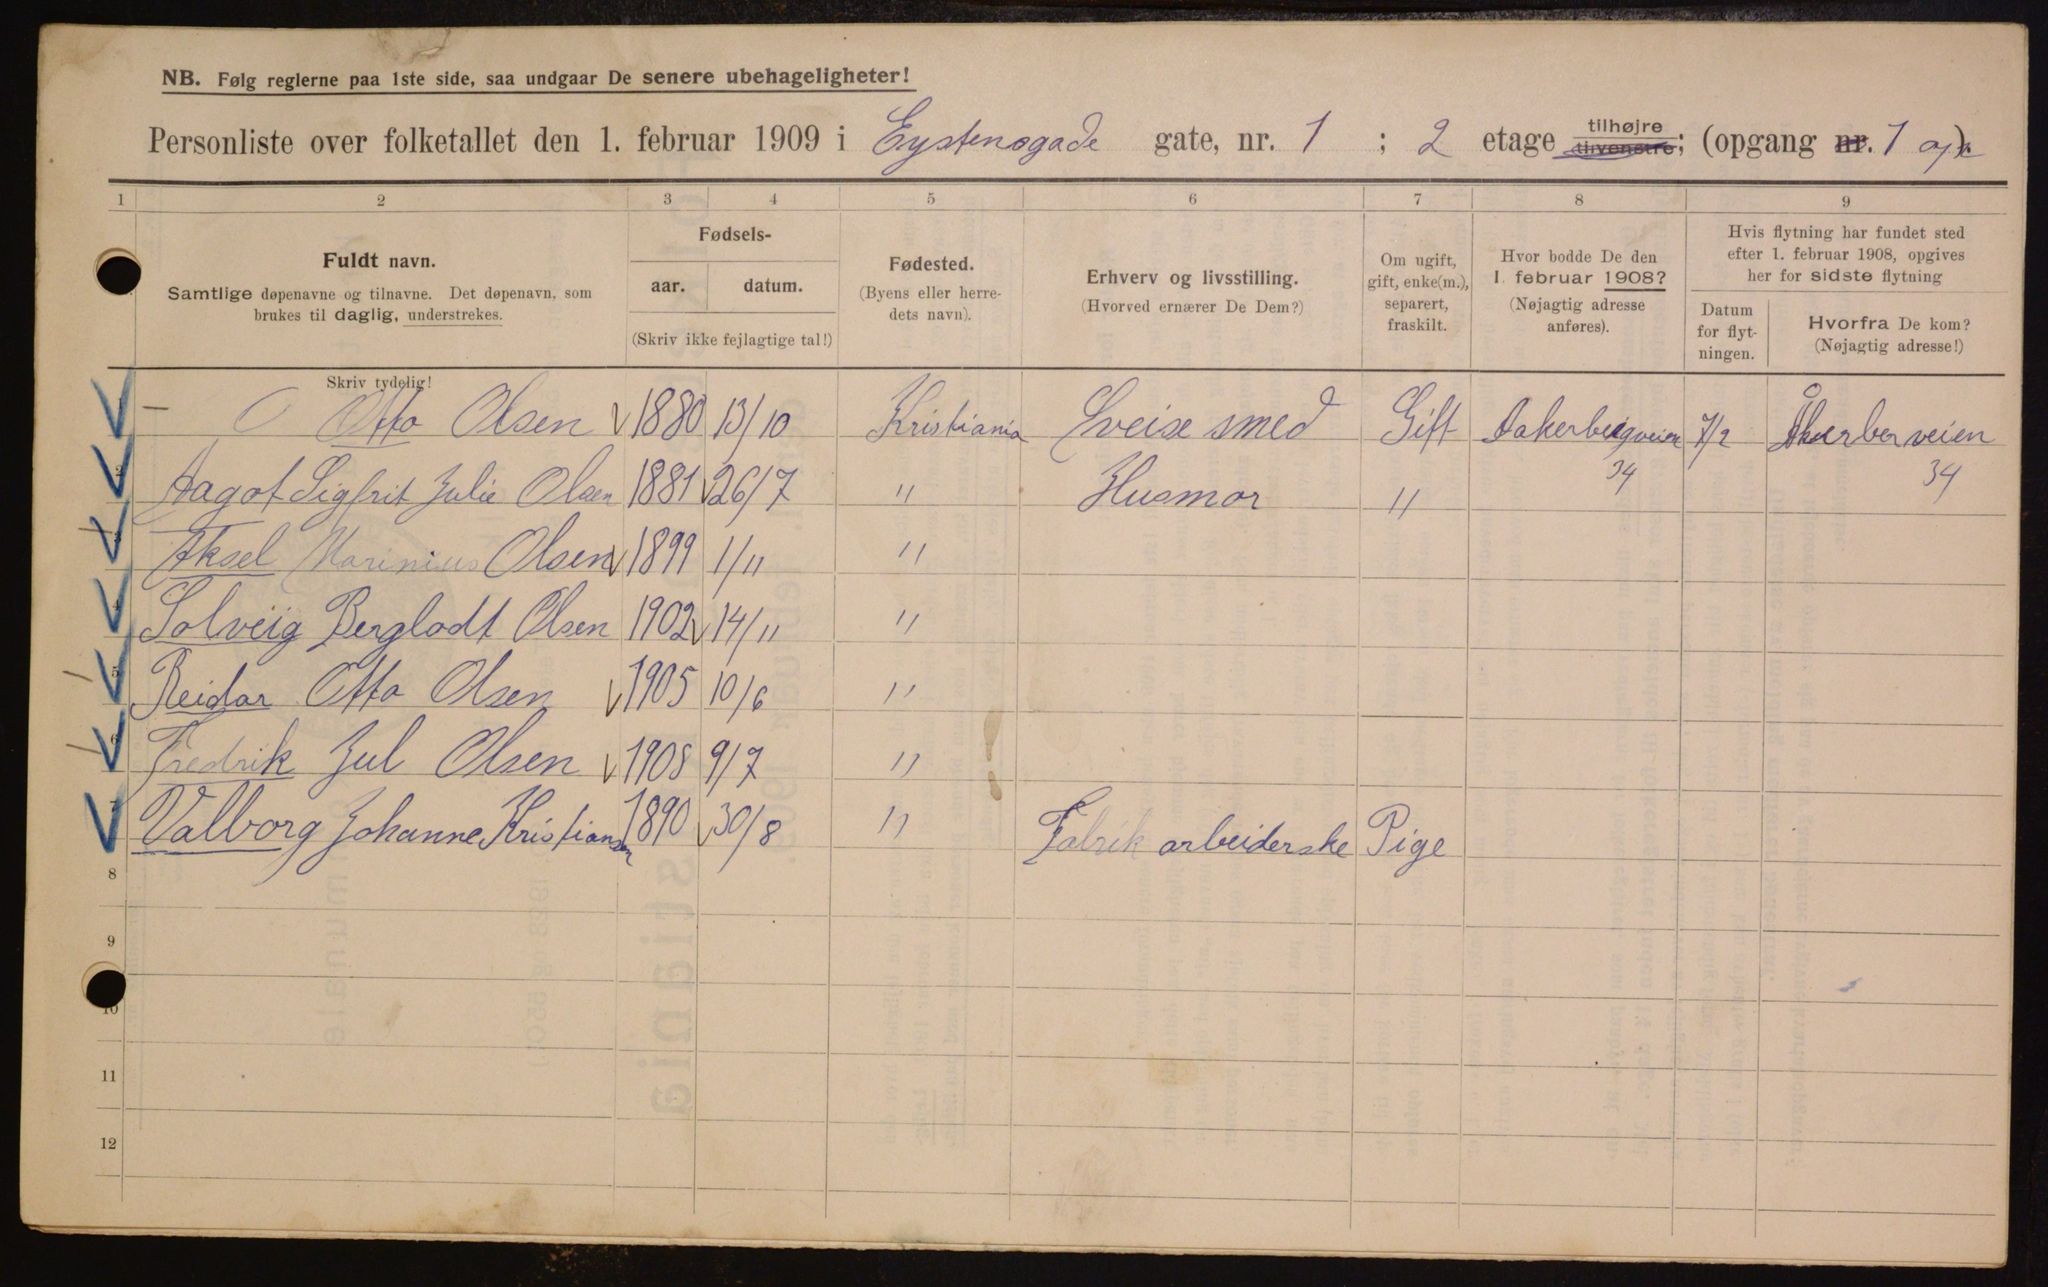 NB. Følg reglerne paa 1ste side, saa undgaar De senere ubehageligheter!
Personliste over folketallet den 1. februar 1909 i Eystensgade gate, nr. 1 ; 2 etage tilhøjre tilvenstre; (opgang nr. 1 op).
1 2 3 4 5 6 7 8 9
Fuldt navn.
Samtlige døpenavne og tilnavne. Det døpenavn, som
brukes til daglig, understrekes.
Fødsels-
aar. datum.
(Skriv ikke fejlagtige tal!)
Fødested.
(Byens eller herre-
dets navn).
Erhverv og livsstilling.
(Hvorved ernærer De Dem?)
Om ugift,
gift, enke(m.),
separert,
fraskilt.
Hvor bodde De den
1. februar 1908?
(Nøjagtig adresse
anføres).
Hvis flytning har fundet sted
efter 1. februar 1908, opgives
her for sidste flytning
Datum
for flyt-
ningen.
Hvorfra De kom?
(Nøjagtig adresse!)
Skriv tydelig!
1 Otto Olsen 1880 13/10 Kristiania Sveise smed Gift Aakerbergveien 34 7/2 Åkerberveien 34
2 Aagot Sigfrit Julie Olsen 1881 26/7 " Husmor "
3 Aksel Marinius Olsen 1899 1/11 "
4 Solveig Berglodt Olsen 1902 14/11 "
5 Reidar Otto Olsen 1905 10/6 "
6 Fredrik Jul Olsen 1908 9/7 "
7 Valborg Johanne Kristiansen 1890 30/8 " Fabrik arbeiderske Pige
8
9
10
11
12